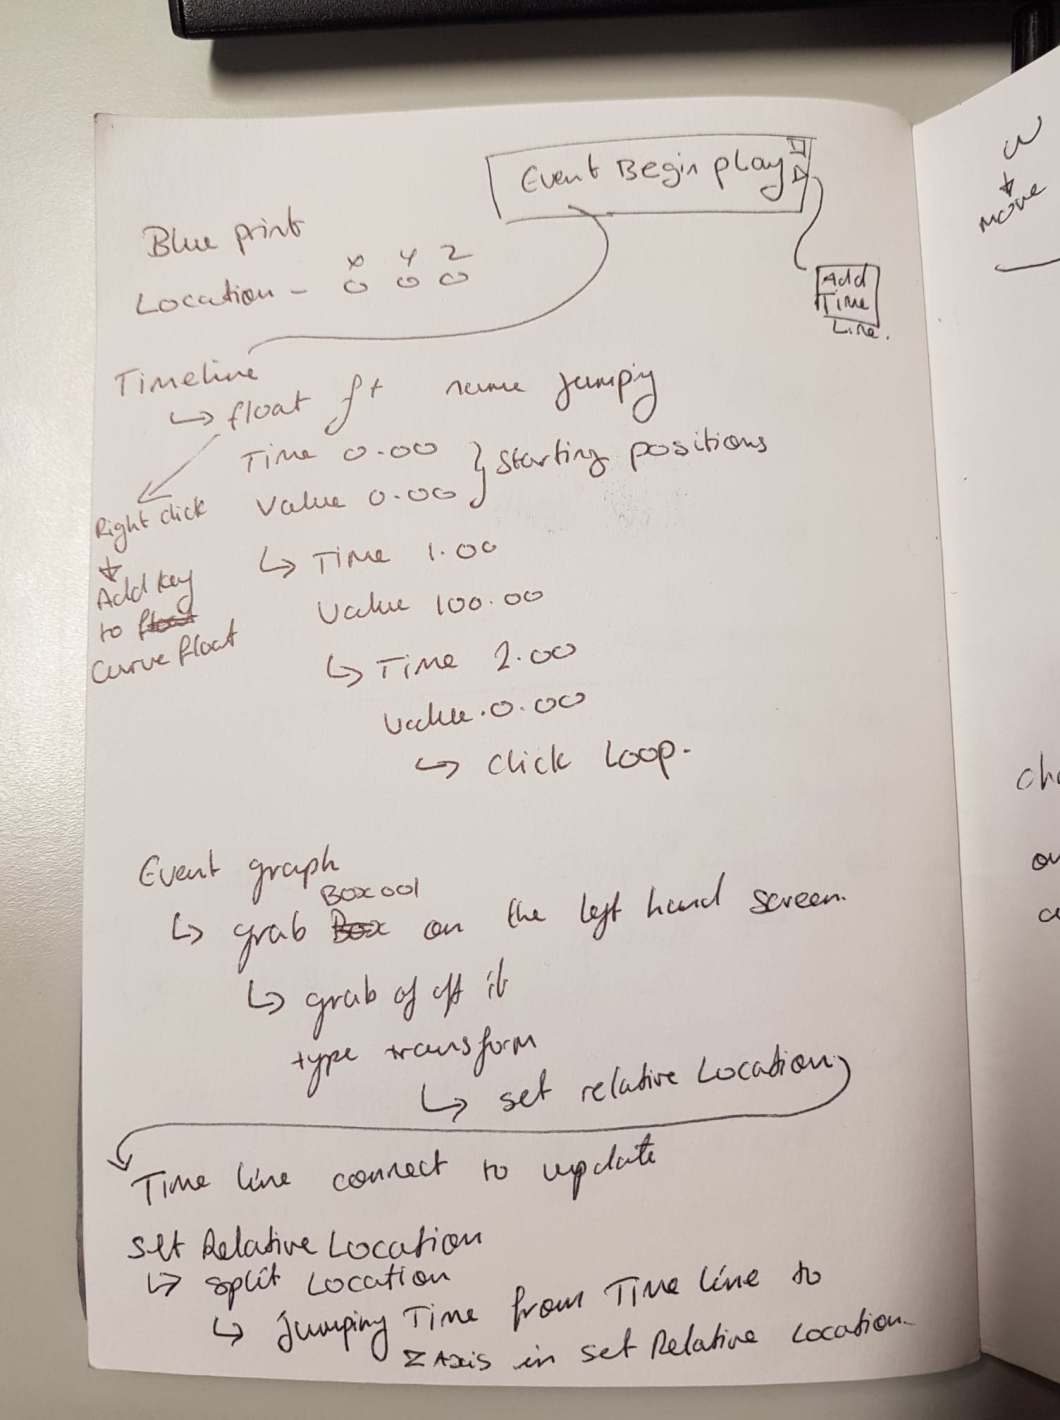 Event Begin play
Blue print
x y z
Location - 0 0 0
Add
Time
Line.
Timeline
↳ float ft name jumpiy
Time 0.00 } starting positions
Value 0.00
Right click
Add key
to
Curve float
↳ Time 1.00
Value 100.00
↳ Time 2.00
Value.0.00
↳ click Loop.
Event graph
Box001
↳ grab Box on the left hand screen.
↳ grab of off it
type transform
↳ set relative Location
Time line connect to update
Set Relative Location
↳ split Location
↳ jumping Time from Time line to
Z Axis in set Relative Location.
W
move